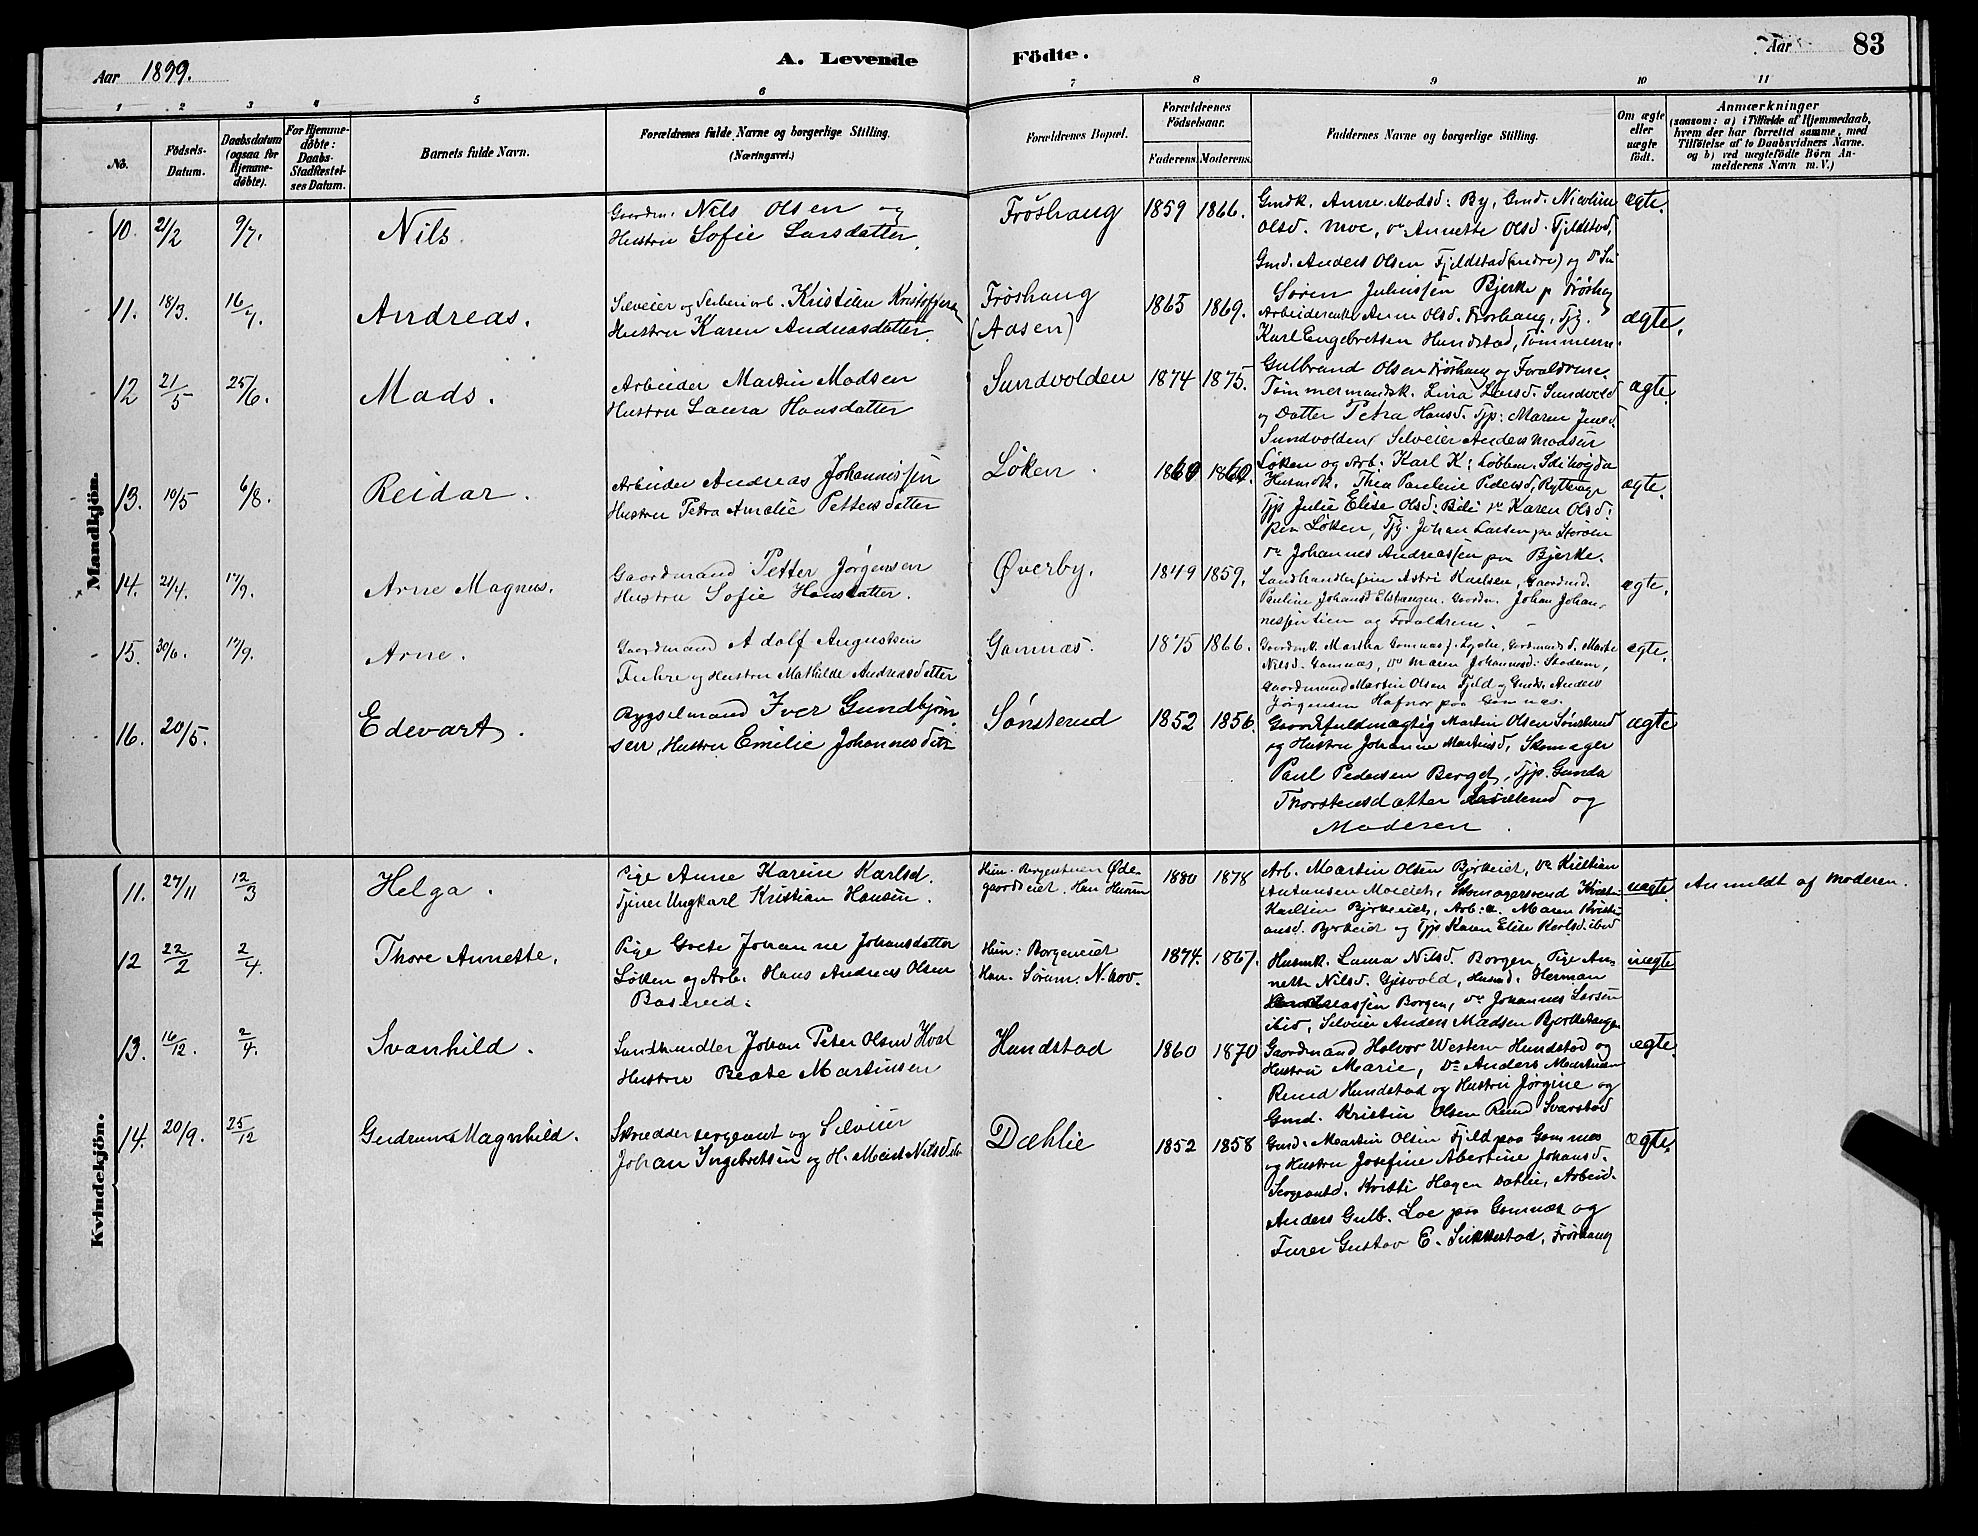 Aar 1899.
A. Levende
Födte.
Aar
83
1 2 3 4 5 6 7 8 9 10 11
No.
Födsels-Datum.
Daabsdatum (ogsaa for Hjemme-döbte).
For Hjemme-döbte: Daabs-Stadfæstel-ses Datum.
Barnets fulde Navn.
Forældrenes fulde Navne og borgerlige Stilling.
(Næringsvei.)
Forældrenes Bopæl.
Forældrenes Födselsaar.
Faderens. Moderens.
Faddernes Navne og borgerlige Stilling.
Om ægte eller uægte födt.
Anmærkninger
(saasom: a) i Tilfælde af Hjemmedaab,
hvem der har forrettet samme, med
Tilföielse af to Daabsvidners Navne.
og b) ved uægtefödte Börn An-
melderens Navn m.V.)
Mandkjön.
10. 21/2 9/7. Nils.
Gaardm. Nils Olsen og
Hustru Sofie Larsdatter.
Frøshaug 1859 1866.
Gmdk. Anne Madsd: By, Gmd. Nicoline
Olsd. Moe, do Annette Olsd. Fjeldstad,
Gmd. Anders Olsen Fjeldstad (nedre) og
ægte.
11. 18/3. 16/7. Andreas.
Selveier og Kristian Kristoffersen
Hustru Karen Andreasdatter.
Frøshaug
(Aasen)
1865 1869.
Søren Juliussen Bjerke p Frøshaug
Arbeiderenke Anne Olsd. Frøshaug, Tjg.
Karl Engebretsen Hundstad, Tømmerm.
ægte.
12 21/5 25/6. Mads.
Arbeider Martin Madsen
Hustru Laura Hansdatter
Sundvolden 1874 1875.
Gulbrand Olsen Frøshaug og Forældrene.
Tømmermandsk. Lina Larsd. Sundvold
og Datter Petra Hansd. Tjp: Maren Jensd.
Sundvolden, Selveier Anders Madsen
ægte.
13. 10/5 6/8. Reidar.
Arbeider Andreas Johannissen
Hustru Petra Amalie Pettersdatter
Løken. 1860 1860.
Løken og Arb: Karl K: Løbben.
Husmk. Thea Pauline Pedersd. Rytterager
Tjp Julie Elise Olsd: Bili do Karen Olsd:
paa Løken, Tjg. Johan Larsen paa Storøen
do Johannes Andreassen paa Bjerke.
ægte.
14. 21/4. 17/9. Arne Magnus.
Gaardmand Petter Jørgensen
Hustru Sofie Hansdatter.
Øverby. 1849 1859.
Landhandlerfrue Astri Karlsen, Gaardmd.
Pauline Johansd Elstangen. Gaardm. Johan Johan-
og Forældrene.
ægte.
15. 30/6. 17/9. Arne.
Gaardmand Adolf Augustsen
Fuhre og Hustru Mathilde Andreasdatter
Gomnæs. 1875 1866.
Gaardmk. Martha Gomnæs f. Lyche, Gaardmands d. Marte
Nilsd. Gomnæs, do Maren Johannesd: Stadum,
Gaardmand Martin Olsen Fjeld og Gmds. Anders
Jørgensen Hafnor paa Gomnæs.
ægte.
16. 20/5. Edevart.
Bygselmand Iver Gundbjørn-
sen, Hustru Emilie Johannesdtr
Sønsterud 1852 1856.
Gaardfuldmægtig Martin Olsen Sønsterud
og Hustru Johanne Martinsd. Skomager
Paul Pedersen Berget, Tjp. Gunda
Thorstensdatter Sønsterud og
Moderen.
ægte
Kvindekjön.
11. 27/11 12/3 Helga.
Pige Anne Karine Karlsd.
Tjener Ungkarl Kristian Hansen.
Hun: Borgentuen Øde-
gaardseiet. Han
1880 1878
Arb. Martin Olsen Bjørkeiet, do Kristian
Antonsen Moeiet, Skomagersvend Kristian
Karlsen Bjerkeiet, Arb: k. Maren Kristi-
ansd. Bjerkeiet og Tjp Karen Elise Karlsd. ibid
uægte. Anmeldt af Moderen.
12 22/2 2/4. Thore Annette.
Pige Grete Johanne Johansdatter
Løken og Arb. Hans Andreas Olsen
Hun: Borgeneiet
Han. Sørum. N.
1874. 1867.
Husmk. Laura Nilsd. Borgen, Pige An-
nette Nilsd. Gjesvold, Husmd. Herman
Andreassen Borgen, do Johannes Larsen
ibid, Selveier Anders Madsen
uægte
13. 16/12. 2/4. Svanhild.
Landhandler Johan Peter Olsen Hval
Hustru Beate Martinsen
Hundstad 1860 1870
Gaardmand Halvor Western Hundstad og
Hustru Marie, do Anders Martinsen
Rund Hundstad og Hustru Jørgine og
Gmd. Kristen Olsen Rund Svarstad
ægte.
14. 20/9. 25/12 Gudrun Magnhild.
Skræddersergeant og Selveier
Johan Ingebretsen og H. Marit Nilsdtr
Dæhlie 1852 1858
Gmd. Martin Olsen Fjeld paa Gomnæs
og Hustru Josefine Abertine Johansd.
Sergeantd. Kristi Hagen Dæhlie, Arbeid.
Anders Gulb. Loe paa Gomnæs og
Furer Gustav E. Frøshaug
ægte.